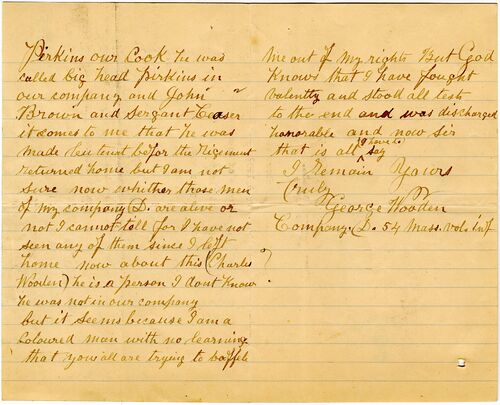 Pirkins our Cook he was
called big head Pirkins in
our company and John "
Brown and Sergant Ceaser
it comes to me that he was
made leutent befor the Regement
returned home but I am not
sure now whither those men
of my company D. are alive or
not I cannot tell for I have not
seen any of them since I left
home now about this (Charles
Wooden) he is a person I dont Know
he was not in our company
but it seems because I am a
Coloured man with no learning
that you all are trying to baffele
me out of my rights But God
Knows that I have fought
valently and stood all tests
to the end and was discharged
honorable and now Sir
that is all I have to say
I Remain Yours
Truly
George Wooden
Company D. 54 Mass. Vols inf